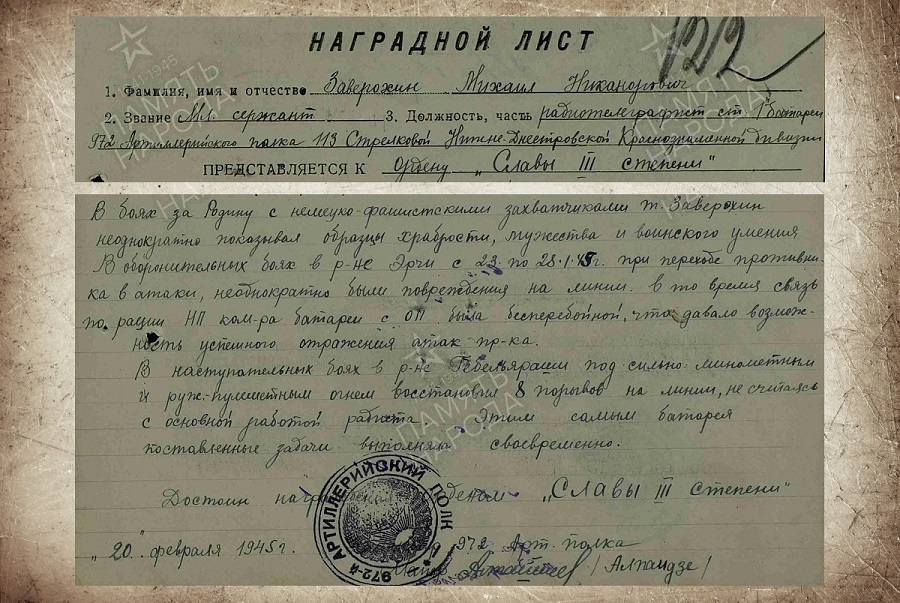 НАГРАДНОЙ ЛИСТ
1. Фамилия, имя и отчество Заверохин Михаил Никанорович
2. Звание Мл. сержант 3. Должность, часть радиотелеграфист ст. 1 батареи
972 Артиллерийского полка 113 Стрелковой Нижне-Днестровской Краснознаменной дивизии
ПРЕДСТАВЛЯЕТСЯ К ордену "Славы III степени"
В боях за Родину с немецко-фашистскими захватчиками т. Заверохин
неоднократно показывал образцы храбрости, мужества и воинского умения
В оборонительных боях в р-не Эрчи с 23 по 28.1.45г. при переходе противни-
ка в атаки, неоднократно были повреждения на линии. в то время связь
по рации НП ком-ра батареи с ОП была бесперебойной, что давало возмож-
ность успешного отражения атак пр-ка.
В наступательных боях в р-не под сильно минометным
и руж-пулиметным огнем восстановил 8 порывов на линии, не считаясь
с основной работой радиста. Этим самым батарея
поставленные задачи выполняла своевременно.
Достоин "Славы III степени"
"20" февраля 1945г. 972 Арт. полка
Майор /Алпаидзе/
972-й АРТИЛЛЕРИЙСКИЙ ПОЛК
1941-1945
ПАМЯТЬ
НАРОДА